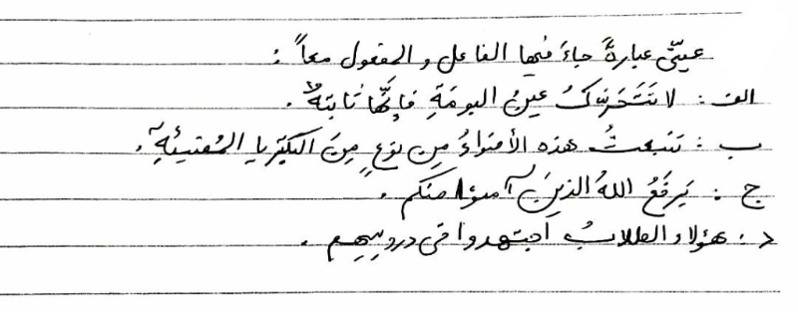 عيّني عبارةً جاءَ فيها الفاعل و المفعول معاً :
الف : لا تَتَحَرّكُ عينُ البومَةِ فإنّها ثابتةٌ .
ب : تَنبَعثُ هذه الأضواءُ مِن نوعٍ مِنَ البَكتيريا المُضيئةِ .
ج : يَرفَعُ اللهُ الذينَ آمنوا منكم .
د : هؤلاء الطلابُ اجتهدوا في دروسِهِم .